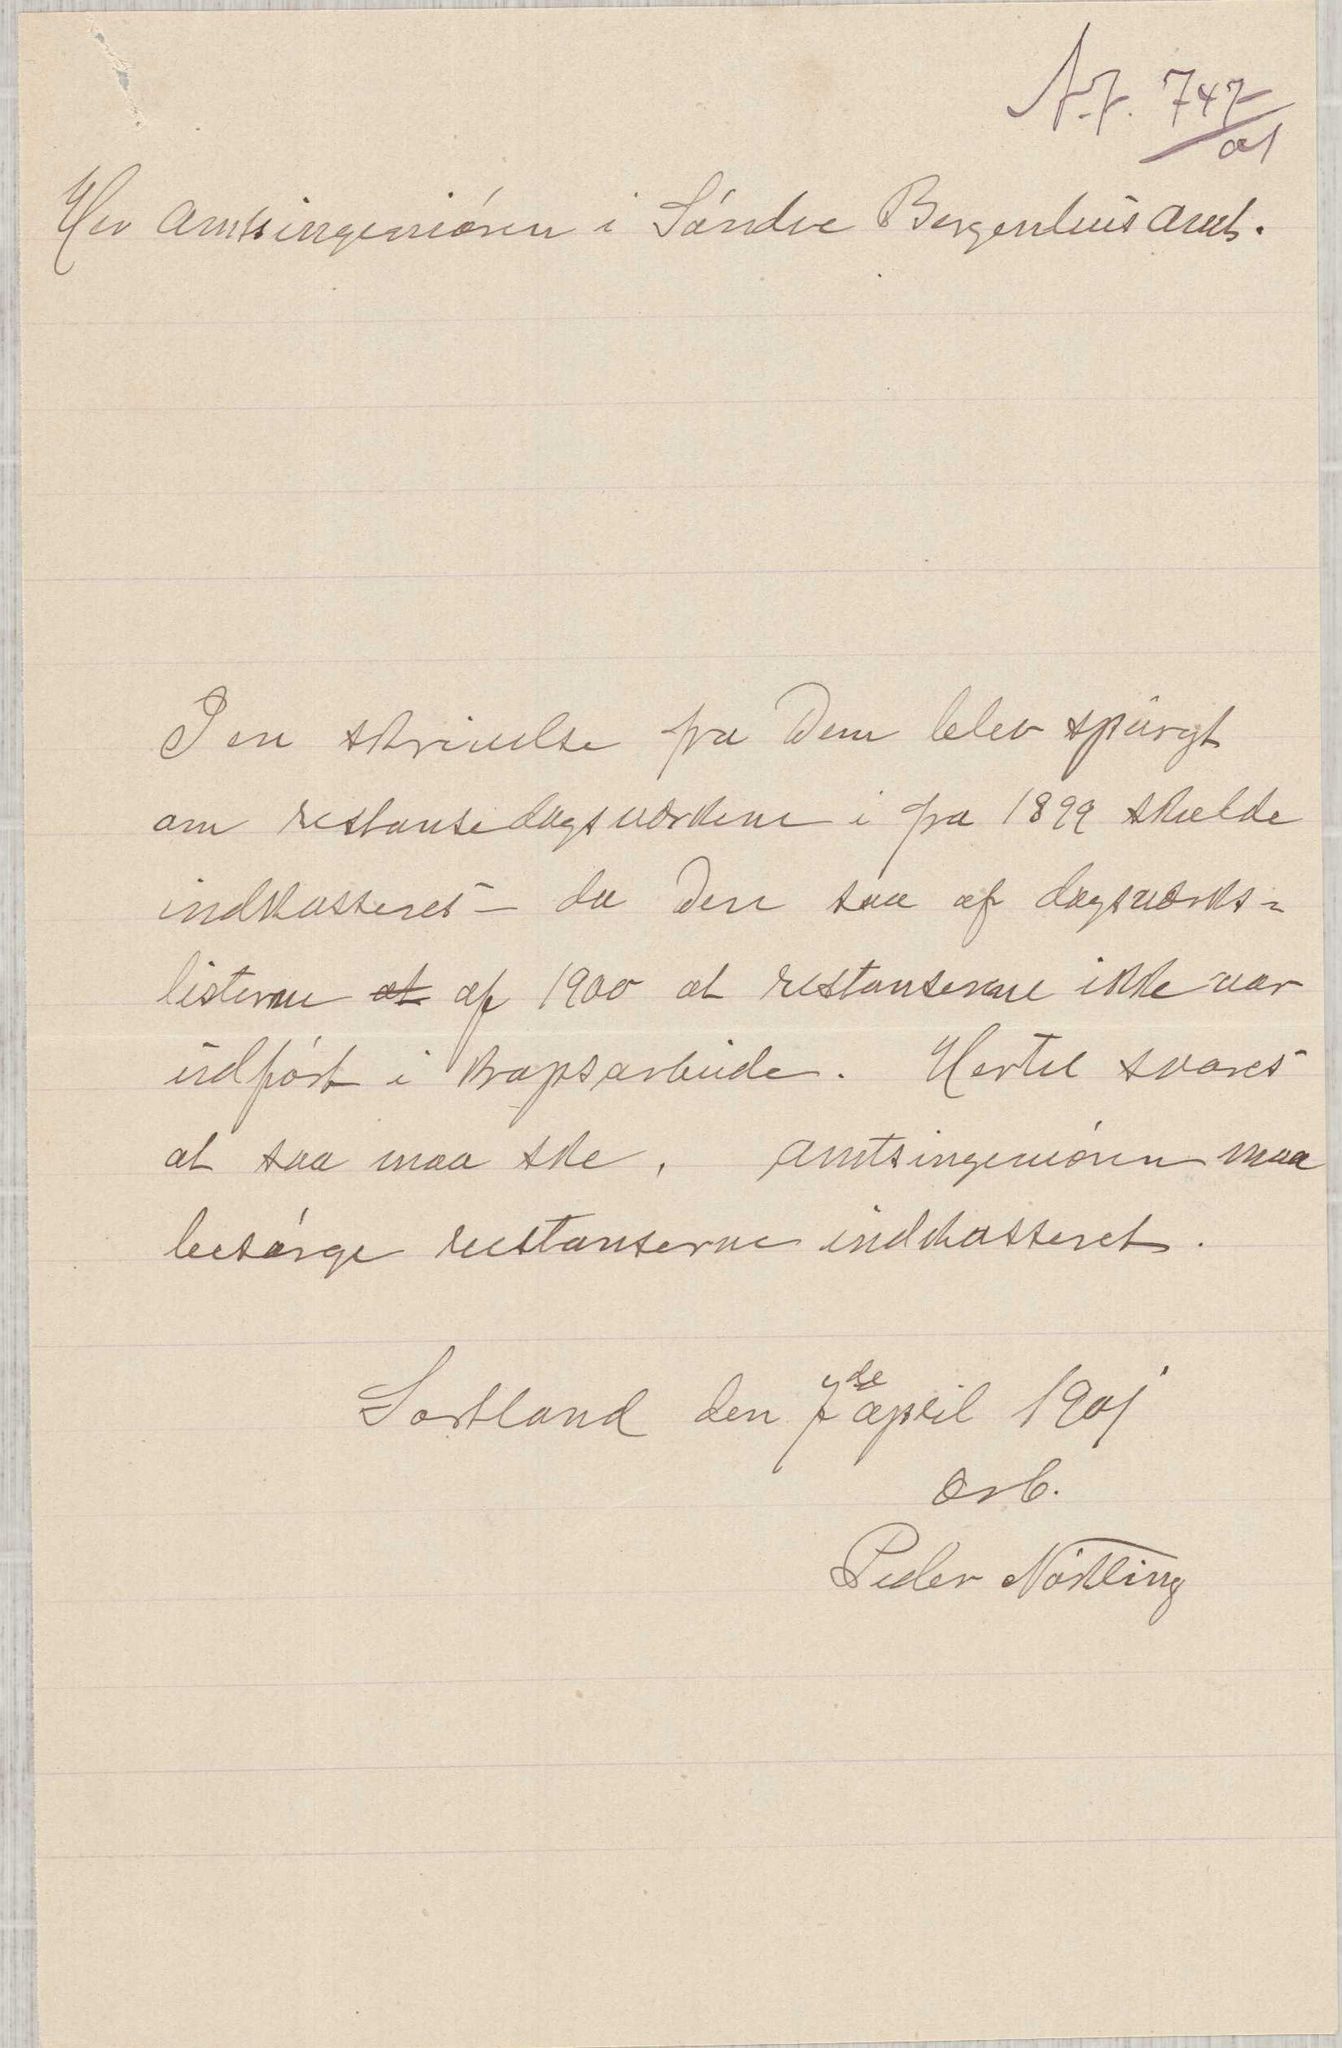 A.J. 747/01
Her amtsingeniøren i Søndre Bergenhus amt.
I en skrivelse fra Dem blev spurgt
om restansedagsværkene i fra 1899 skulde
indkasseres – da Den saa af dagsværks-
listerne at af 1900 at restanserne ikke var
udført i krapsarbeide. Hertil svares
at saa maa ske, amtsingeniøren maa
besørge restanserne indkasseret.
Sortland den 7de april 1901
ærb.
Peder Nøstling